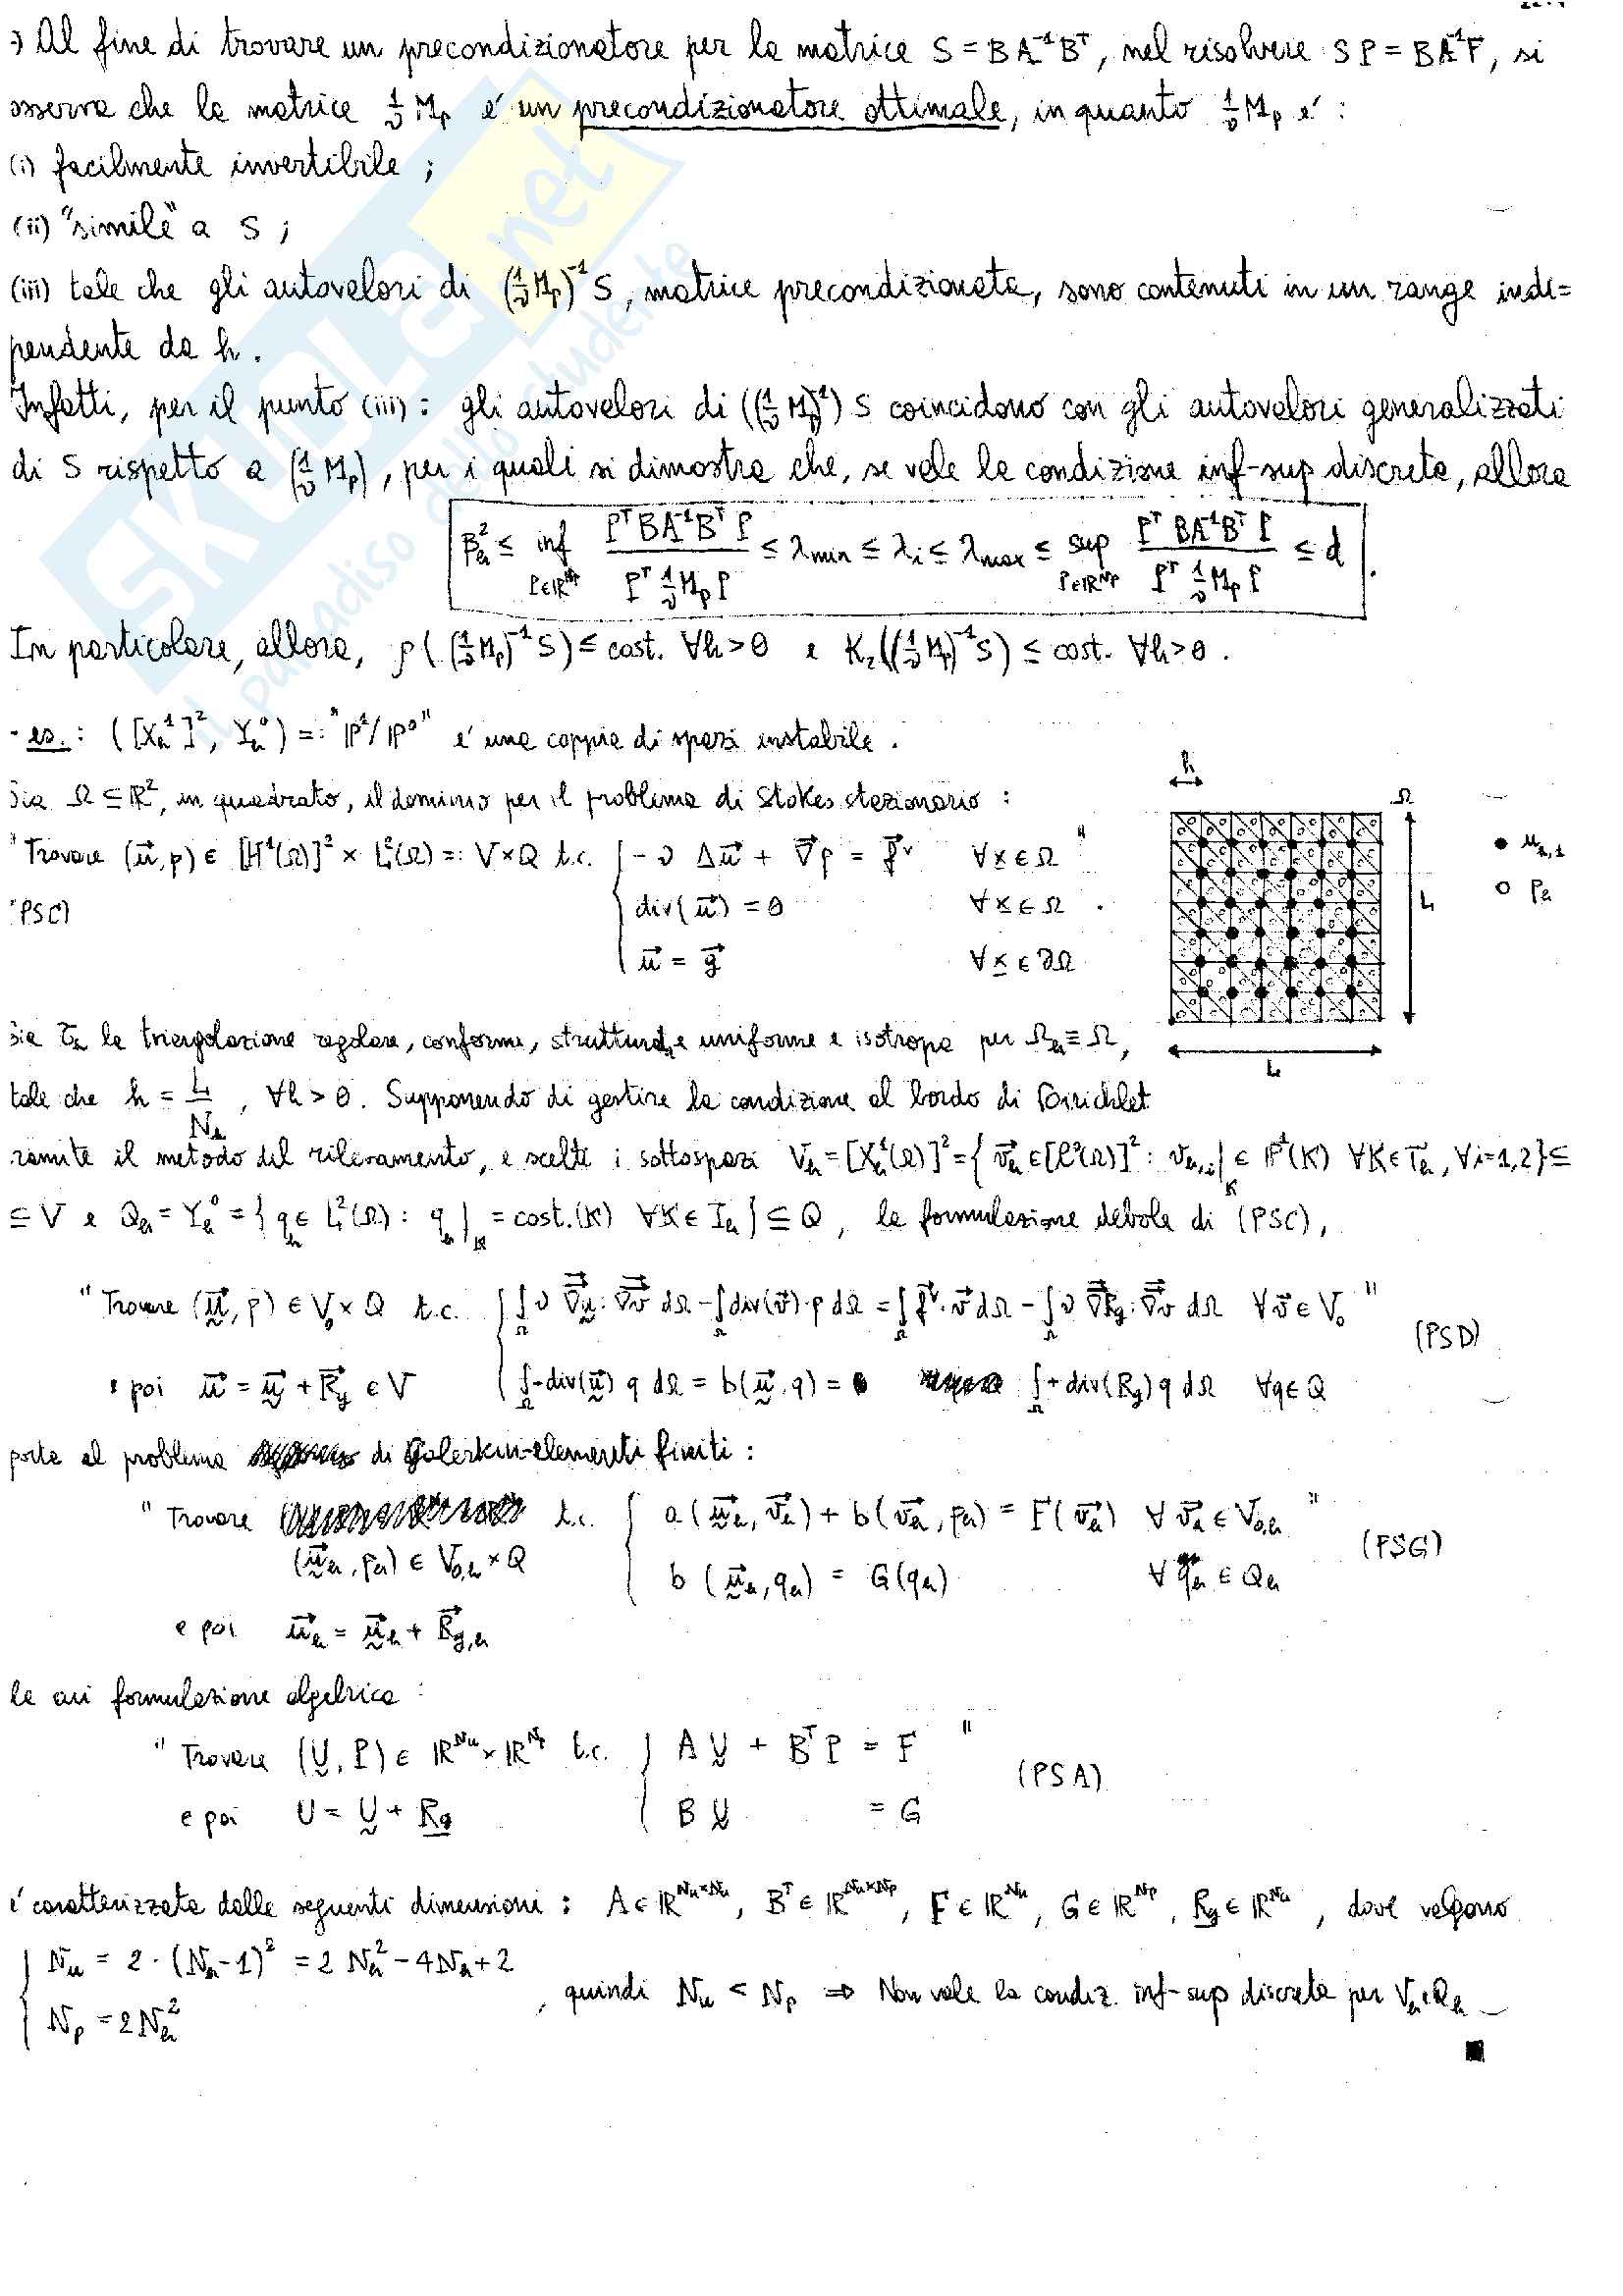 Al fine di trovare un precondizionatore per la matrice S = BA⁻¹Bᵀ, nel risolvere SP = BA⁻¹F, si
osserva che la matrice 1/ν Mp e' un precondizionatore ottimale, in quanto 1/ν Mp e' :
(i) facilmente invertibile ;
(ii) "simile" a S ;
(iii) tale che gli autovalori di (1/ν Mp)⁻¹ S, matrice precondizionata, sono contenuti in un range indi=
pendente da h .
Infatti, per il punto (iii) : gli autovalori di ((1/ν Mp)⁻¹) S coincidono con gli autovalori generalizzati
di S rispetto a (1/ν Mp), per i quali si dimostra che, se vale la condizione inf-sup discreta, allora
βh² ≤ inf P∈ℝ^Np (Pᵀ BA⁻¹Bᵀ P)/(Pᵀ 1/ν Mp P) ≤ λmin ≤ λi ≤ λmax ≤ sup P∈ℝ^Np (Pᵀ BA⁻¹Bᵀ P)/(Pᵀ 1/ν Mp P) ≤ d .
In particolare, allora, ρ((1/ν Mp)⁻¹ S) ≤ cost. ∀h > 0 e K₂((1/ν Mp)⁻¹ S) ≤ cost. ∀h > 0 .
- es. : ([Xh¹]², Yh⁰) =: "ℙ¹/ℙ⁰" e' una coppia di spazi instabile .
Sia Ω ⊆ ℝ², un quadrato, il dominio per il problema di Stokes stazionario :
" Trovare (u⃗, p) ∈ [H¹(Ω)]² × L²(Ω) =: V×Q t.c. { -ν Δu⃗ + ∇⃗p = f⃗ᵛ ∀x ∈ Ω "
(PSC) div(u⃗) = 0 ∀x ∈ Ω .
u⃗ = g⃗ ∀x ∈ ∂Ω
h
Ω
L
L
● uh,1
○ ph
Sia τh la triangolazione regolare, conforme, strutturata, uniforme e isotropa per Ωh ≡ Ω,
tale che h = L/Nh , ∀h > 0. Supponendo di gestire la condizione al bordo di Dirichlet
tramite il metodo del rilevamento, e scelti i sottospazi Vh = [Xh¹(Ω)]² = { v⃗h ∈ [C⁰(Ω)]² : vh,i|K ∈ ℙ¹(K) ∀K ∈ τh, ∀i=1,2} ⊆
⊆ V e Qh = Yh⁰ = { qh ∈ L²(Ω) : qh|K = cost.(K) ∀K ∈ τh } ⊆ Q , la formulazione debole di (PSC),
" Trovare (u⃗, p) ∈ V₀ × Q t.c. { ∫Ω ν ∇u : ∇v dΩ - ∫Ω div(v⃗)·p dΩ = ∫Ω f⃗ᵛ·v⃗ dΩ - ∫Ω ν ∇Rg : ∇v dΩ ∀v⃗ ∈ V₀ "
(PSD)
e poi u⃗ = u⃗ + R⃗g ∈ V { ∫Ω -div(u⃗) q dΩ = b(u⃗, q) = ∫Ω + div(Rg) q dΩ ∀q ∈ Q
porta al problema di Galerkin-elementi finiti :
" Trovare t.c. { a(u⃗h, v⃗h) + b(v⃗h, ph) = F(v⃗h) ∀v⃗h ∈ V0,h "
(u⃗h, ph) ∈ V0,h × Q
b(u⃗h, qh) = G(qh) ∀qh ∈ Qh
(PSG)
e poi u⃗h = u⃗h + R⃗g,h
la cui formulazione algebrica :
" Trovare (U, P) ∈ ℝ^Nu × ℝ^Np t.c. { A U + Bᵀ P = F "
(PSA)
e poi U = U + Rg { B U = G
e' caratterizzata dalle seguenti dimensioni : A ∈ ℝ^Nu×Nu, Bᵀ ∈ ℝ^Nu×Np, F ∈ ℝ^Nu, G ∈ ℝ^Np, Rg ∈ ℝ^Nu , dove valgono
{ Nu = 2·(Nh-1)² = 2Nh² - 4Nh + 2
Np = 2Nh²
, quindi Nu < Np ⇒ Non vale la condiz. inf-sup discreta per Vh e Qh
SKUOLA.net
il paradiso dello studente